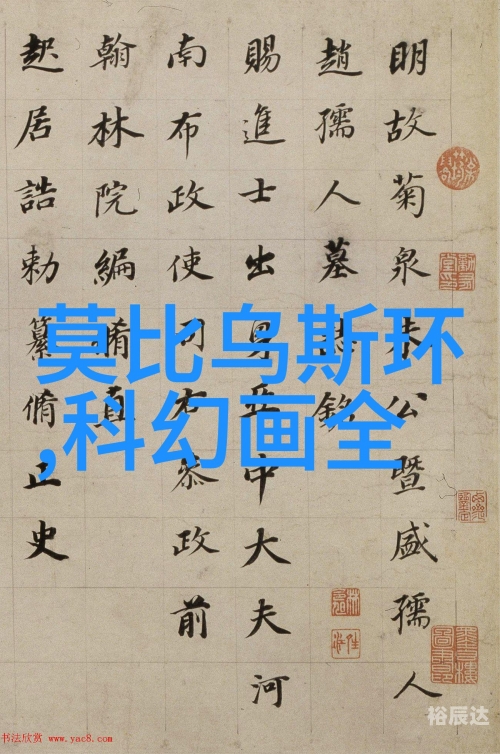 明故菊泉朱公暨盛孺人
趙孺人墓誌銘
賜進士出身亞中大夫河
南布政使司右叅政前
翰林院編脩直
起居誥勅纂脩正史
莫比乌斯环
,科幻画全
书法欣赏 www.yac8.com
裕辰达